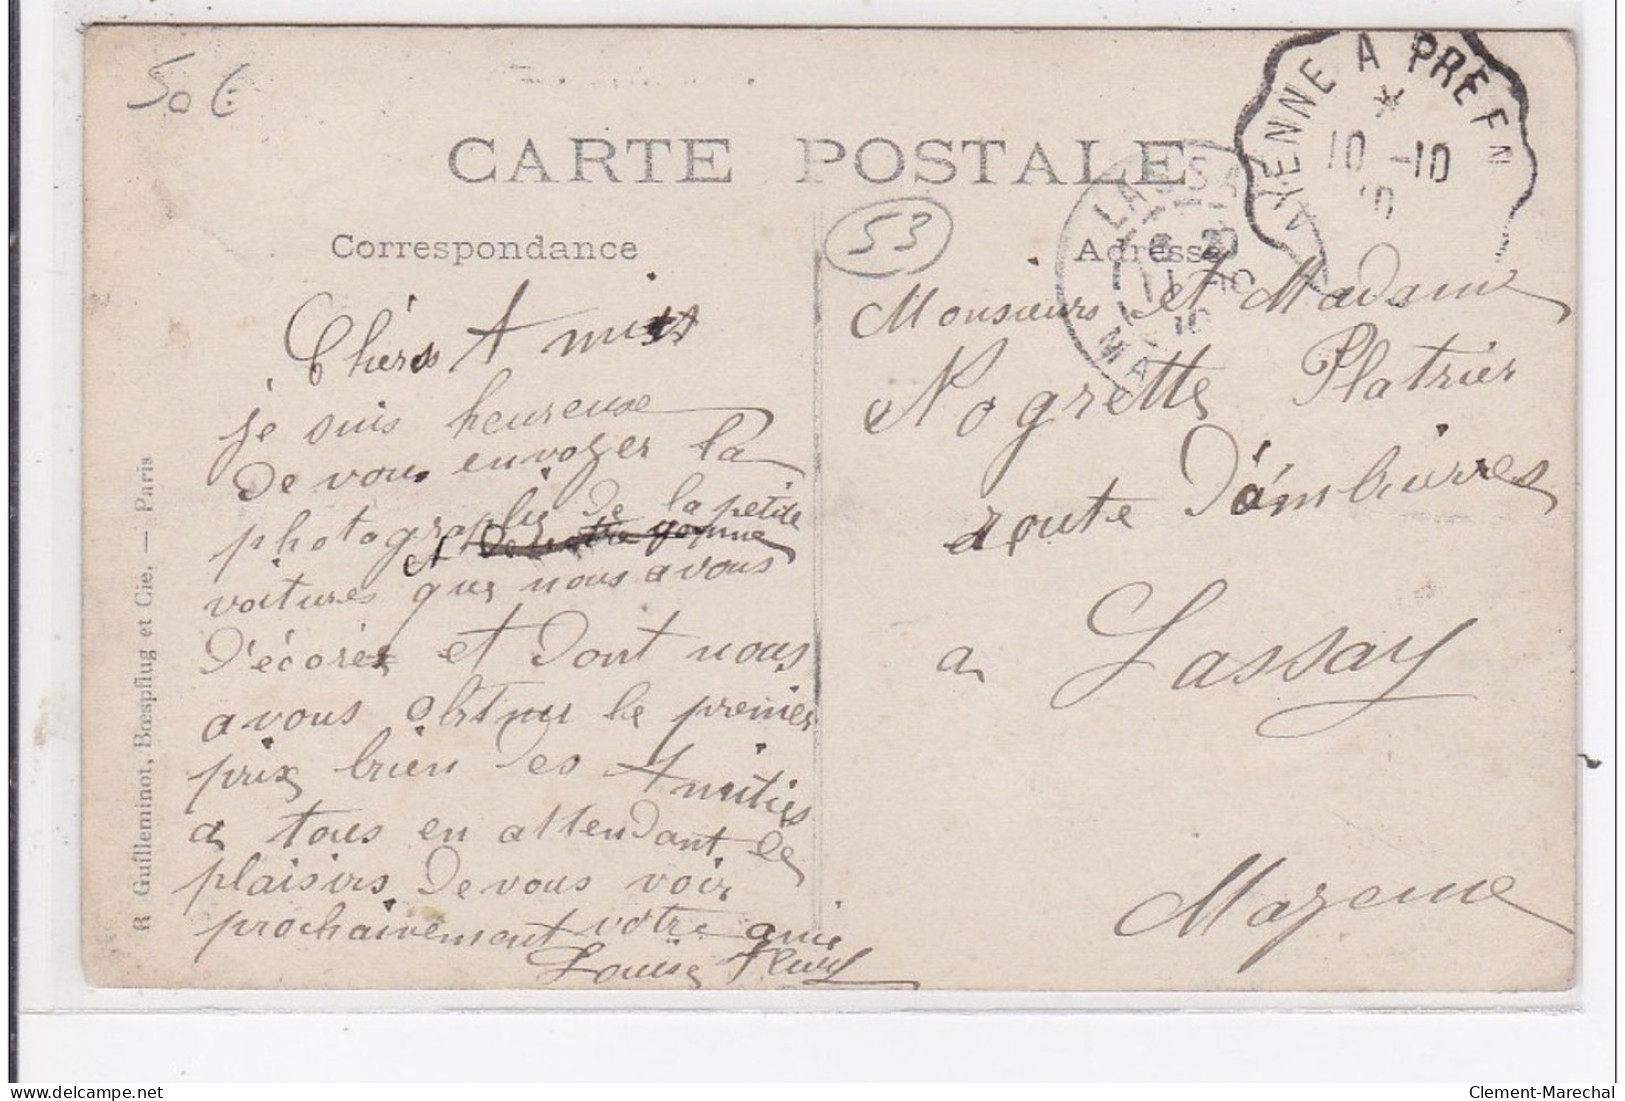 50 €
CARTE POSTALE
Correspondance
53
Adresse
MAYENNE A PRE EN
10 -10
10
LASSAY
11 -10
10
MAY
Chers Amis
je suis heureuse
de vous envoyer la
photographie de la petite
voitures que nous avous
D'écorés et dont nous
avous obtenu le premier
prix bien des Amitiés
a tous en attendant le
plaisirs de vous voir
prochainement votre amie
Louise Fleury
Monsieurs et Madame
Nogrette Platrier
route D'ambrières
a Lassay
Mayenne
R Guilleminot, Bœspflug et Cie. — Paris
Clement-Marechal